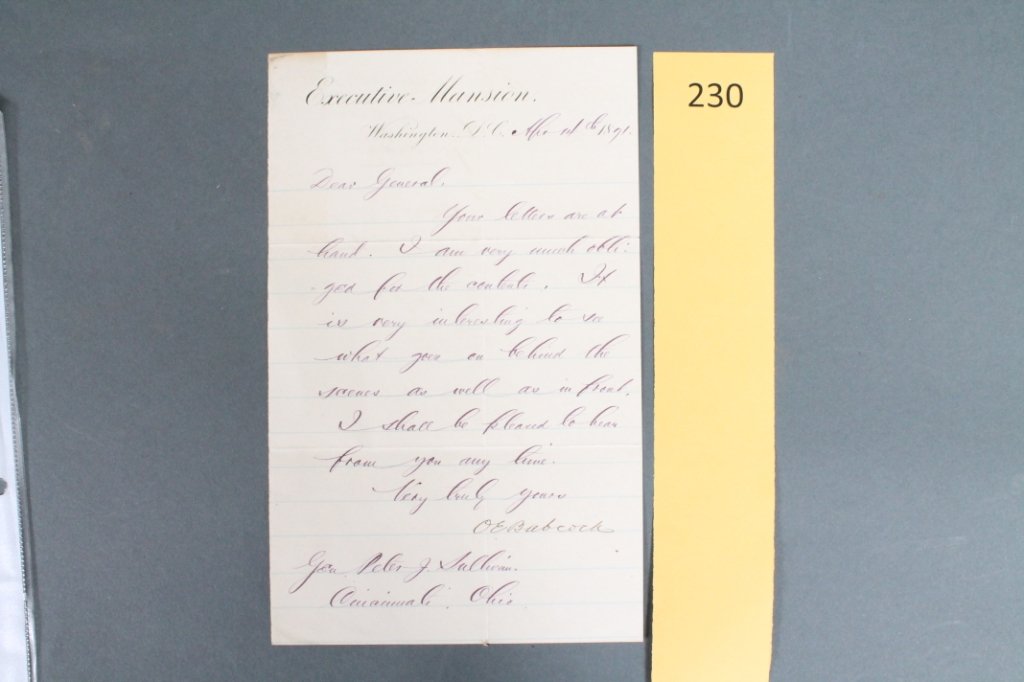 Executive Mansion.
230
Washington, D.C. 1871.
Dear General,
Your letters are at
hand. I am very much obli-
-ged for the contents. It
is very interesting to see
what goes on behind the
scenes as well as in front.
I shall be pleased to hear
from you any time.
Very truly yours
O E Babcock
Gen Peter J Sullivan.
Cincinnati, Ohio.